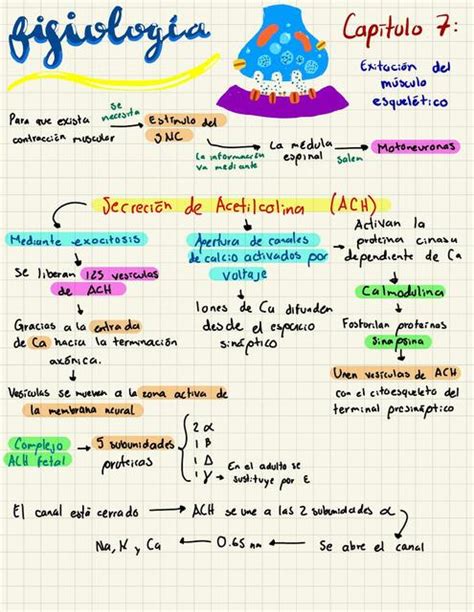 fisiología
Capítulo 7:
Exitación del
músculo
esquelético
Para que exista
contracción muscular
se
necesita
Estímulo del
SNC
La información
va mediante
La médula
espinal
salen
Motoneuronas
Secreción de Acetilcolina (ACH)
Mediante exocitosis
Se liberan 125 vesículas
de ACH
Gracias a la entrada
de Ca hacia la terminación
axónica.
Vesículas se mueven a la zona activa de
la membrana neural
Apertura de canales
de calcio activados por
voltaje
Iones de Ca difunden
desde el espacio
sináptico
Activan la
proteína cinasa
dependiente de Ca
Calmodulina
Fosforilan proteínas
Sinapsina
Unen vesículas de ACH
con el citoesqueleto del
terminal presináptico
Complejo
ACH fetal
5 subunidades
proteicas
2 α
1 β
1 Δ
1 γ
En el adulto se
sustituye por E
El canal está cerrado → ACH se une a las 2 subunidades α
Na, K y Ca ← 0.65 nm ← Se abre el canal